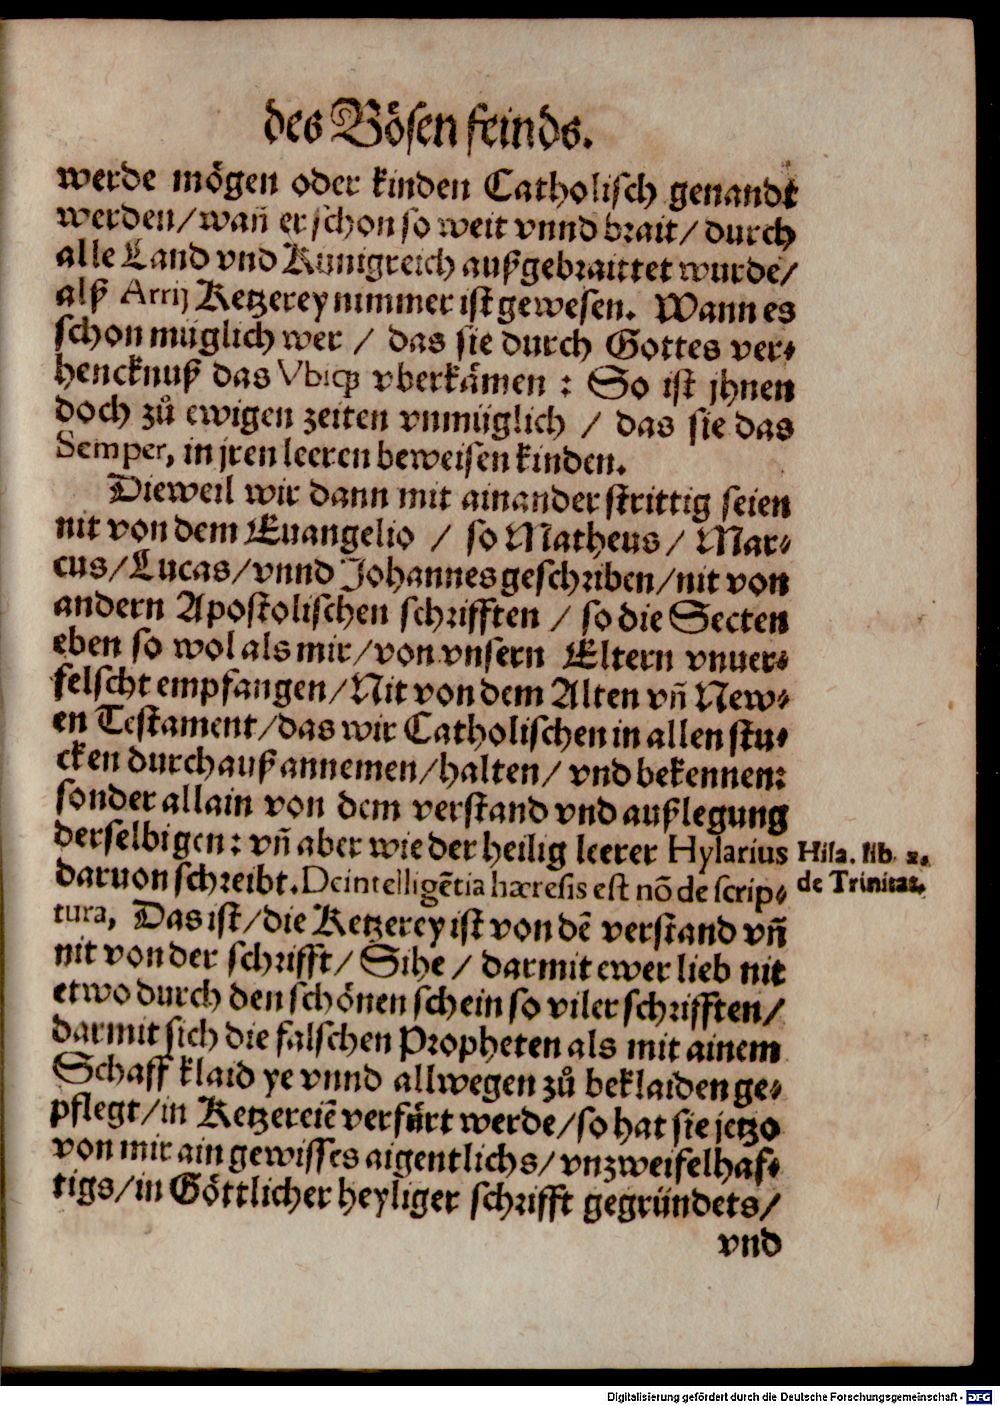 des Bösen feinds.
werde mögen oder kinden Catholisch genandt
werden/wañ er schon so weit vnnd brait/ durch
alle Land vnd Künigreich außgebraittet wurde/
alß Arrij Ketzerey nimmer ist gewesen. Wann es
schon müglich wer / das sie durch Gottes ver-
hencknuß das Vbicꝗ vberkämen : So ist jhnen
doch zů ewigen zeiten vnmüglich / das sie das
Semper, in jren leeren beweisen kinden.
Dieweil wir dann mit ainander strittig seien
nit von dem Euangelio / so Matheus/ Mar-
cus/Lucas/vnnd Johannes geschriben/nit von
andern Apostolischen schrifften / so die Secten
eben so wol als mir/von vnsern Eltern vnuer-
felscht empfangen/Nit von dem Alten vñ New-
en Testament/das wir Catholischen in allen stu-
cken durchauß annemen/halten/ vnd bekennen:
sonder allain von dem verstand vnd außlegung
derselbigen: vñ aber wie der heilig leerer Hylarius
daruon schreibt. De intelligẽtia hæresis est nõ de scrip-
tura, Das ist/die Ketzerey ist von dẽ verstand vñ
nit von der schrifft/ Sihe / darmit ewer lieb nit
etwo durch den schönen schein so viler schrifften/
darmit sich die falschen Propheten als mit ainem
Schaff klaid ye vnnd allwegen zů beklaiden ge-
pflegt/in Ketzereiẽ verfürt werde/so hat sie jetzo
von mir ain gewisses aigentlichs/vnzweifelhaf-
tigs/in Göttlicher heyliger schrifft gegründets/
vnd
Hila. lib. 2.
de Trinitat.
Digitalisierung gefördert durch die Deutsche Forschungsgemeinschaft - DFG